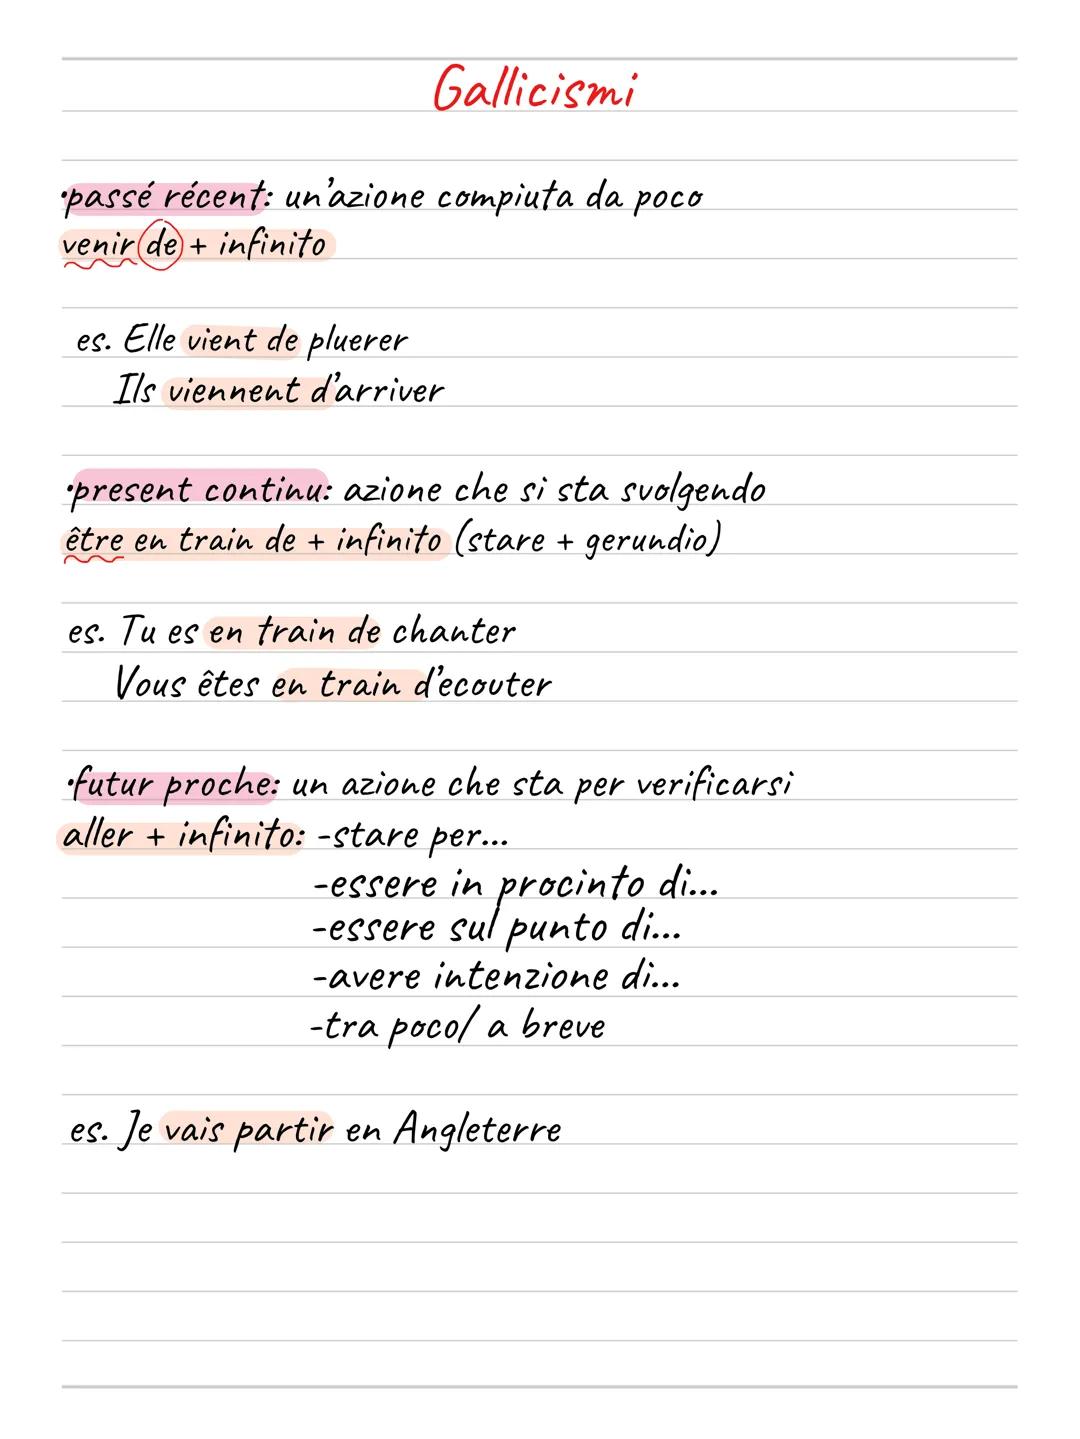 Gallicismi
•passé récent: un'azione compiuta da poco
venir de + infinito
es. Elle vient de pluerer
Ils viennent d'arriver
•present continu: azione che si sta svolgendo
être en train de + infinito (stare + gerundio)
es. Tu es en train de chanter
Vous êtes en train d'ecouter
•futur proche: un azione che sta per verificarsi
aller + infinito: -stare per...
-essere in procinto di...
-essere sul punto di...
-avere intenzione di...
-tra poco/ a breve
es. Je vais partir en Angleterre